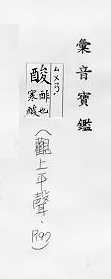 彙音寶鑑
ㄙㄨㄢ
酸 醋也
寒酸
(觀上平聲, P99)